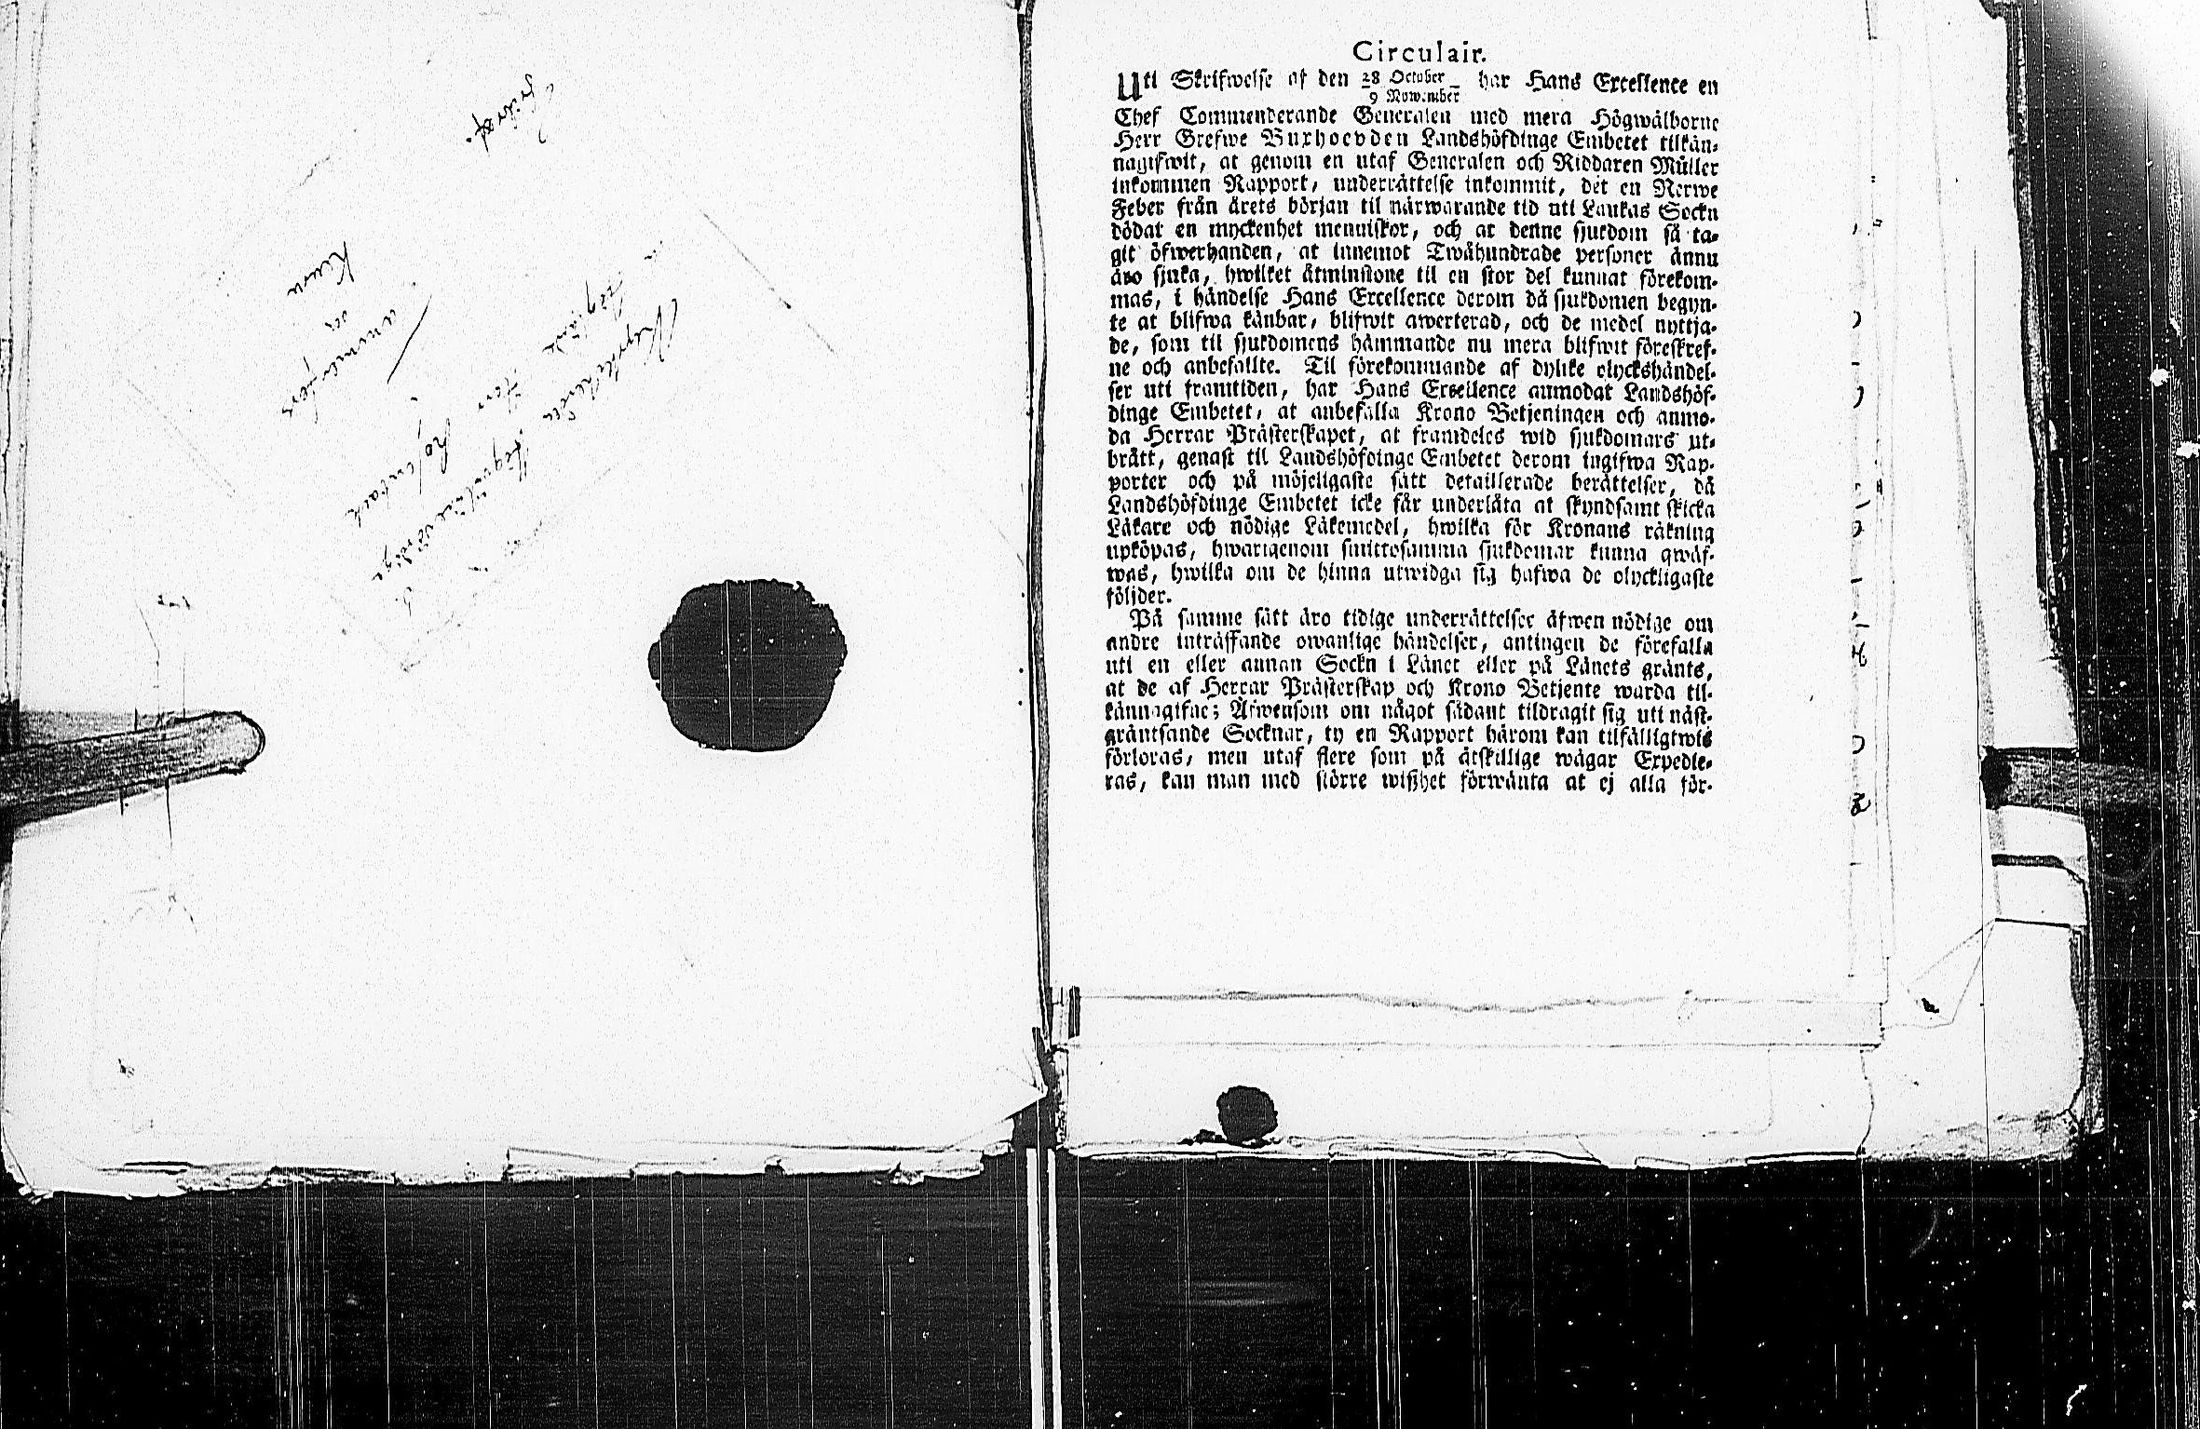 Circulair.
Uti Skrifwelse af den 28 October / 9 November har Hans Excellence en
Chef Commenderande Generalen med mera Högwälborne
Herr Grefwe Buxhoevden Landshöfdinge Embetet tilkän-
nagifwit, at genom en utaf Generalen och Riddaren Müller
inkommen Rapport, underrättelse inkommit, det en Nerwe
Feber från årets början til närwarande tid uti Laukas Sockn
dödat en myckenhet menniskor, och at denne sjukdom så ta-
git öfwerhanden, at innemot Twåhundrade personer ännu
äro sjuka, hwilket åtminstone til en stor del kunnat förekom-
mas, i händelse Hans Excellence derom då sjukdomen begyn-
te at blifwa känbar, blifwit awerterad, och de medel nyttja-
de, som til sjukdomens hämmande nu mera blifwit föreskref-
ne och anbefallte. Til förekommande af dylike olyckshändel-
ser uti framtiden, har Hans Excellence anmodat Landshöf-
dinge Embetet, at anbefalla Krono Betjeningen och anmo-
da Herrar Prästerskapet, at framdeles wid sjukdomars ut-
brått, genast til Landshöfdinge Embetet derom ingifwa Rap-
porter och på möjeligaste sätt detaillerade berättelser, då
Landshöfdinge Embetet icke får underlåta at skyndsamt skicka
Läkare och nödige Läkemedel, hwilka för Kronans räkning
upköpas, hwarigenom smittosamma sjukdomar kunna qwäf-
was, hwilka om de hinna utwidga sig hafwa de olyckligaste
följder.
På samme sätt äro tidige underrättelser äfwen nödige om
andre inträffande owanlige händelser, antingen de förefalla
uti en eller annan Sockn i Länet eller på Länets gränts,
at de af Herrar Prästerskap och Krono Betjente warda til-
kännagifne; Äfwensom om något sådant tildragit sig uti näst-
gräntsande Socknar, ty en Rapport härom kan tilfälligtwis
förloras, men utaf flere som på åtskillige wägar Expedie-
ras, kan man med större wisshet förwänta at ej alla för-